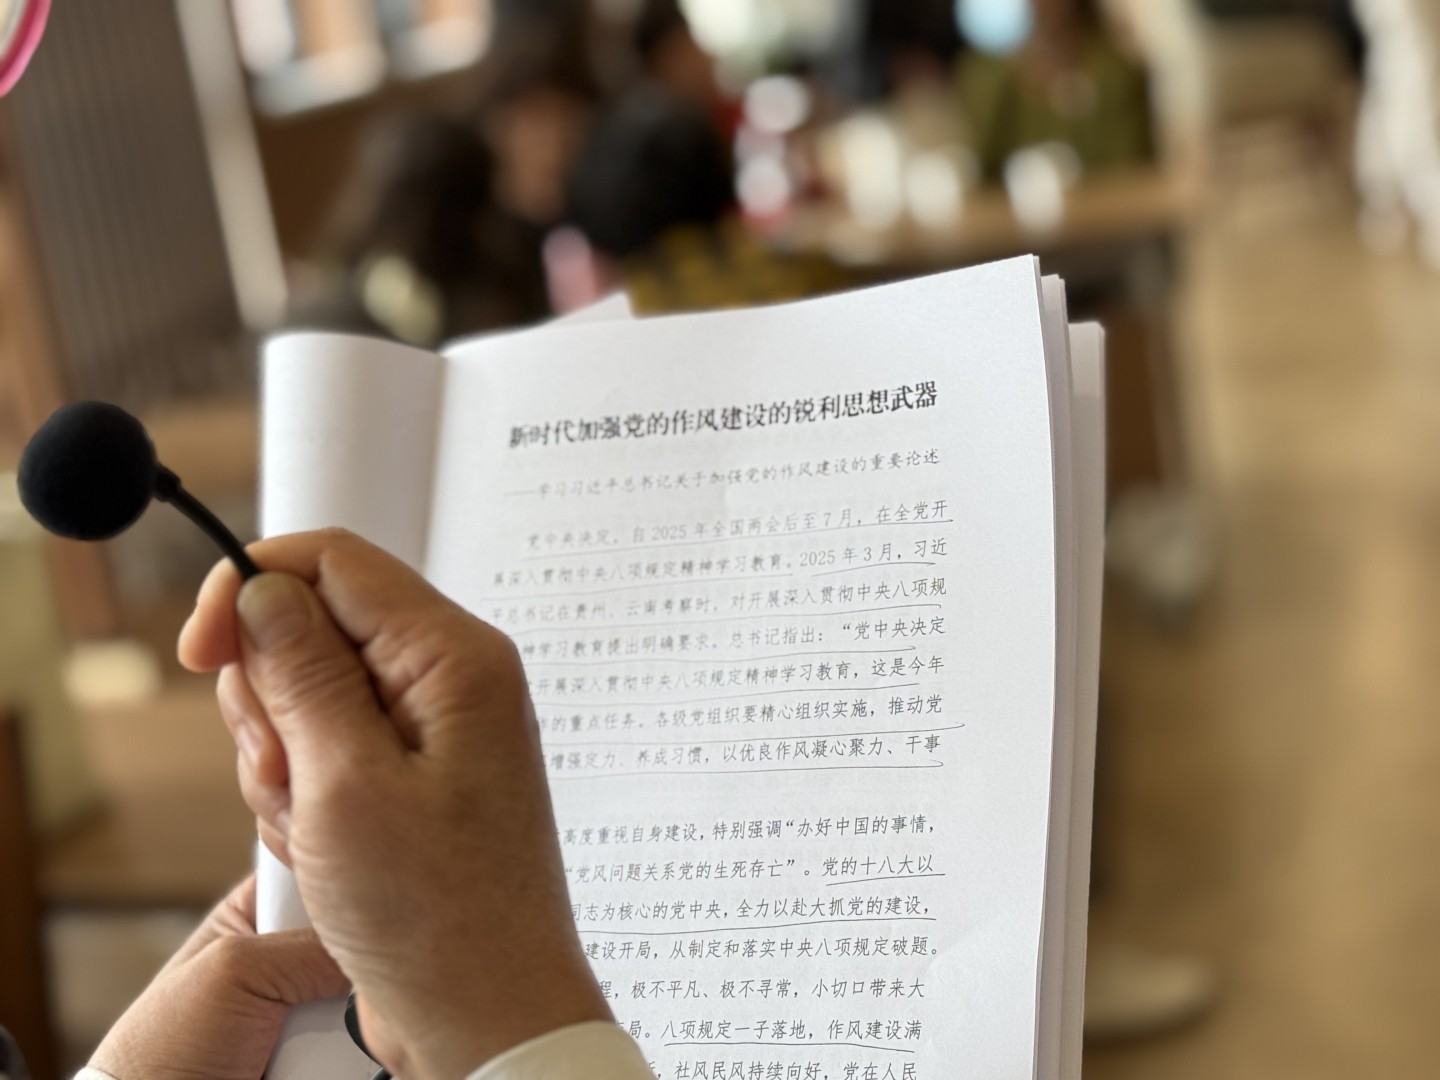 新时代加强党的作风建设的锐利思想武器
——学习习近平总书记关于加强党的作风建设的重要论述
党中央决定，自 2025 年全国两会后至 7 月，在全党开
展深入贯彻中央八项规定精神学习教育。2025 年 3 月，习近
平总书记在贵州、云南考察时，对开展深入贯彻中央八项规
神学习教育提出明确要求。总书记指出：“党中央决定
开展深入贯彻中央八项规定精神学习教育，这是今年
作的重点任务。各级党组织要精心组织实施，推动党
增强定力、养成习惯，以优良作风凝心聚力、干事
高度重视自身建设，特别强调“办好中国的事情，
“党风问题关系党的生死存亡”。党的十八大以
同志为核心的党中央，全力以赴大抓党的建设，
建设开局，从制定和落实中央八项规定破题。
程，极不平凡、极不寻常，小切口带来大
局。八项规定一子落地，作风建设满
，社风民风持续向好，党在人民